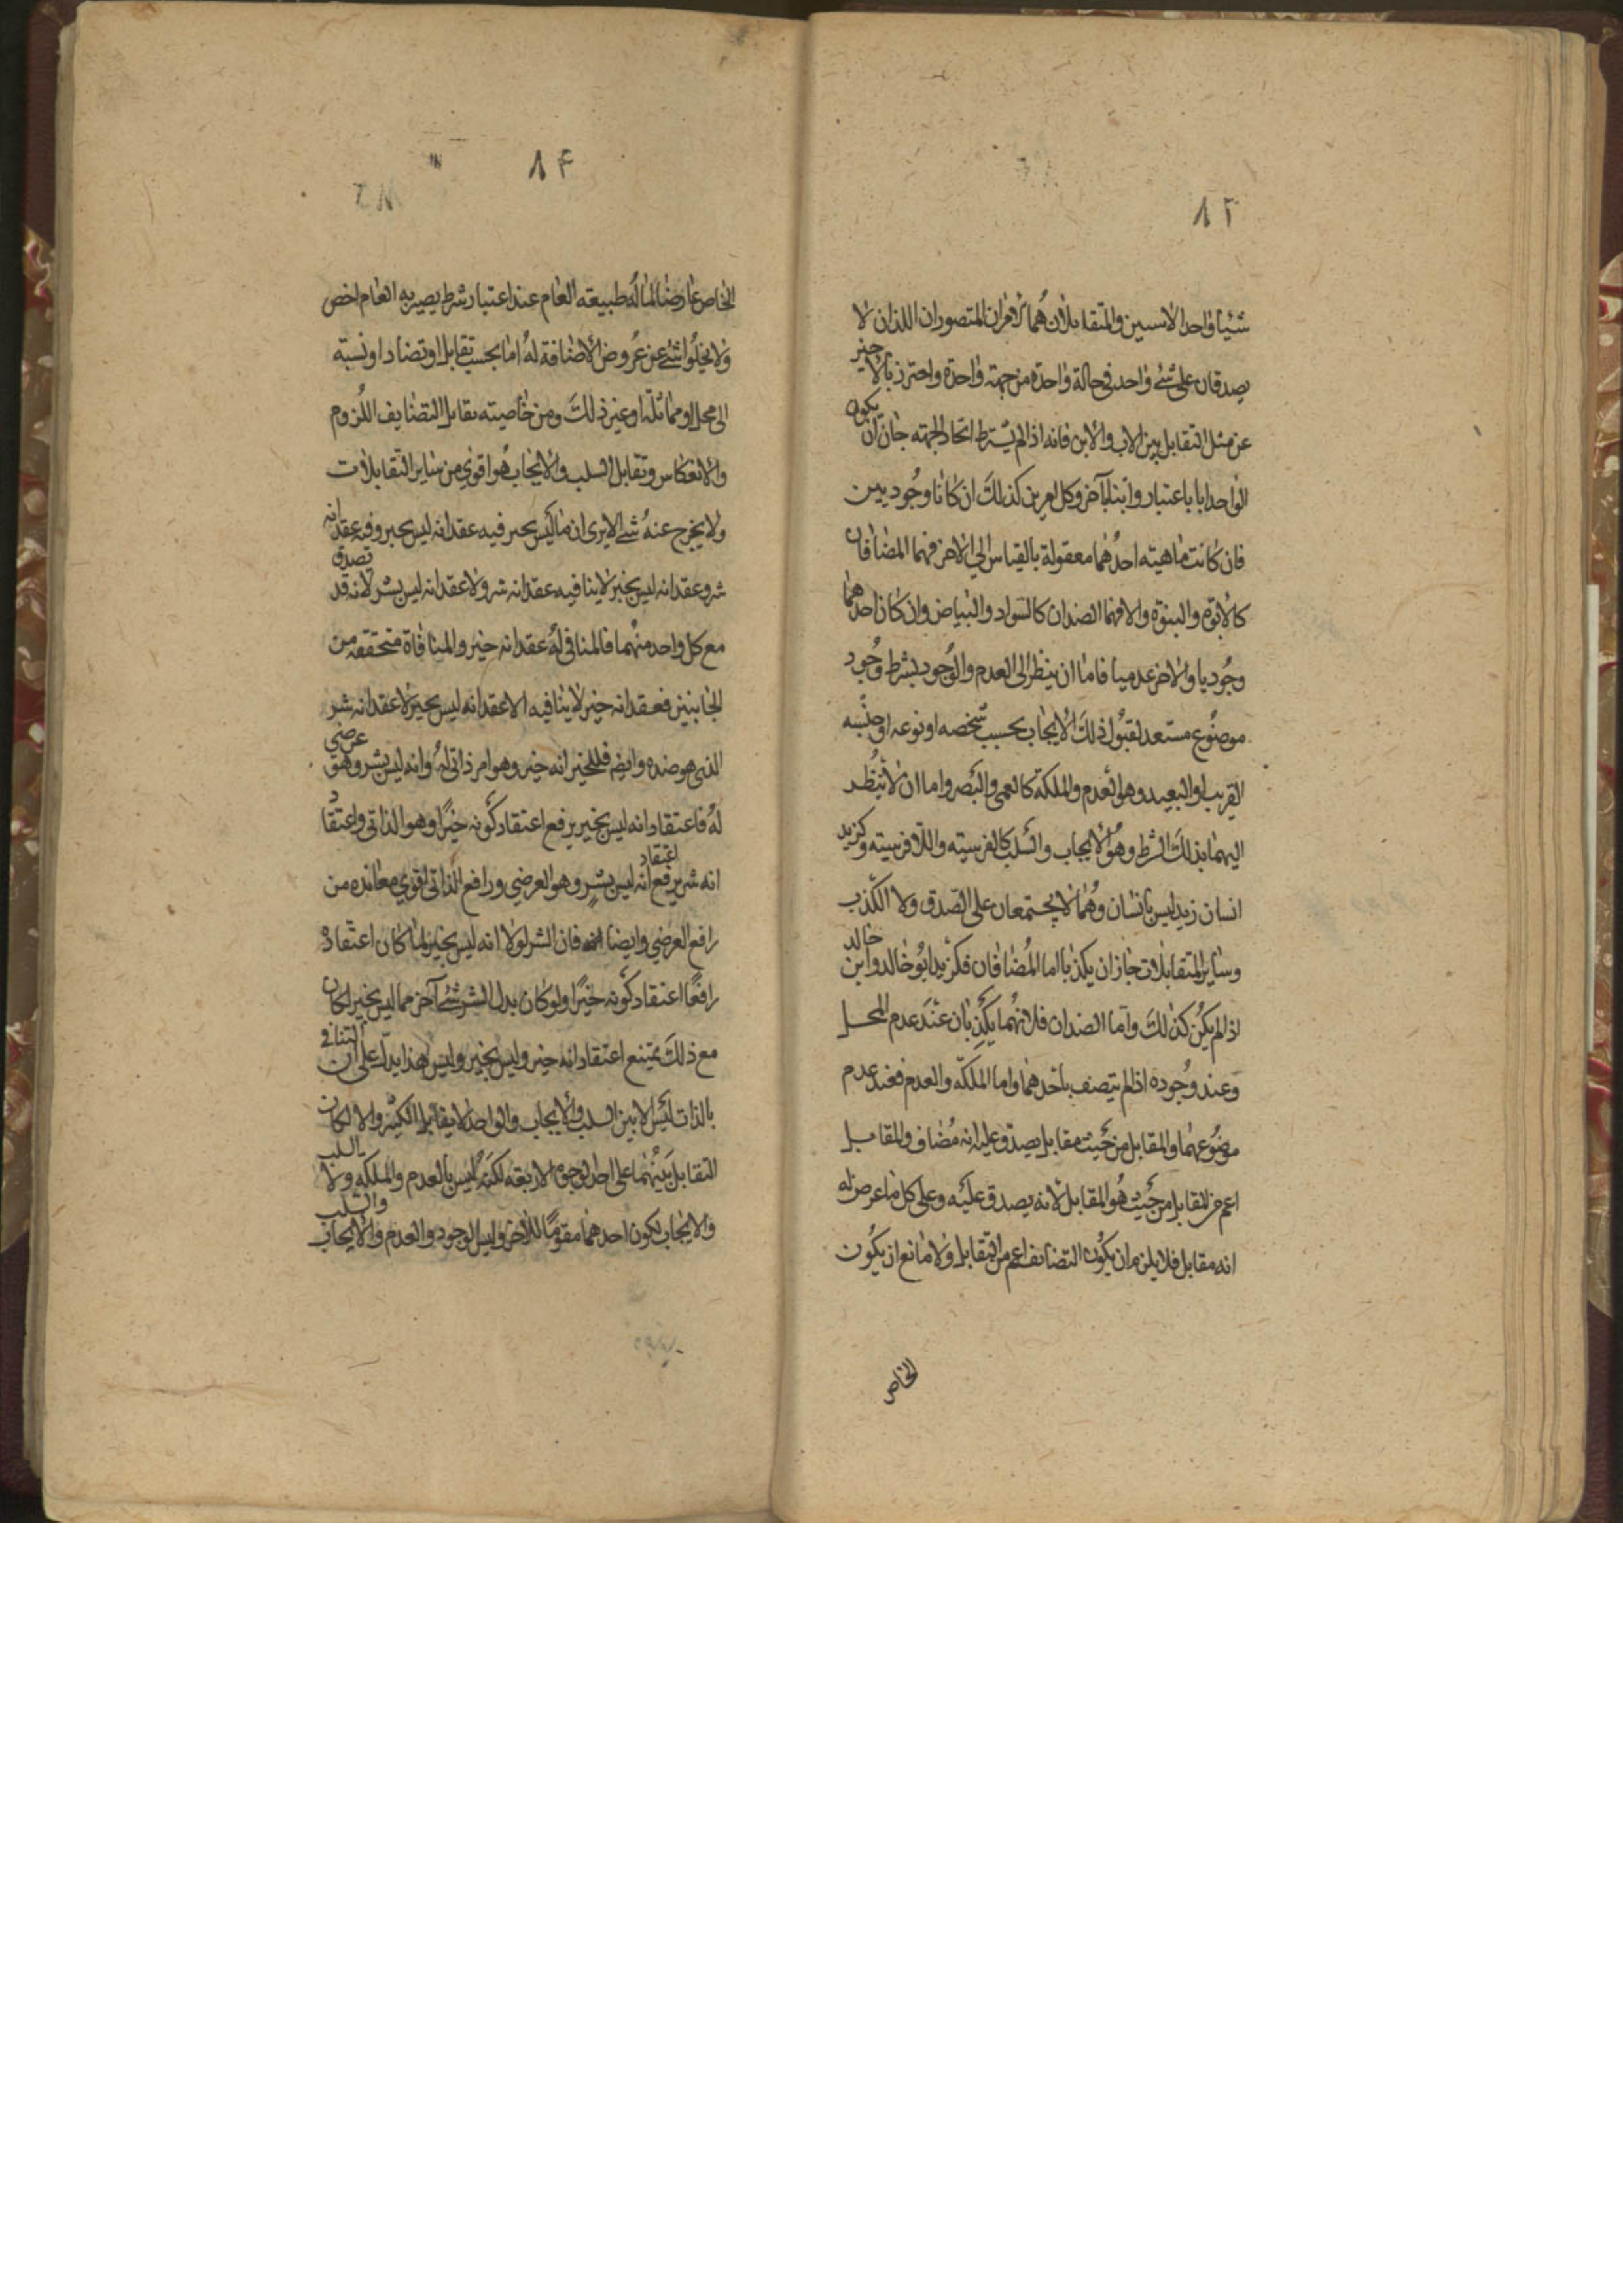 ٨٣
شيئا واحدا لا اسيين والمتقابلان هما الامران المتصوران اللذان لا
يصدقان على شئ واحد في حالة واحدة من جهة واحدة واحترز بالاخير
عن مثل التقابل بين الاب والابن فانه اذا لم يشترط اتحاد الجهته جاز ان يكون
الواحد ابا باعتبار وابنا بآخر وكل امرين كذلك ان كانا وجوديين
فان كانت ماهيته احدهما معقولة بالقياس الي الاخر فهما المضافان
كالابوة والبنوة والا فهما الضدان كالسواد والبياض وان كان احدهما
وجوديا والاخر عدميا فاما ان ينظر الى العدم والوجود بشرط وجود
موضوع مستعد لقبول ذلك الايجاب بحسب شخصه او نوعه او جنسه
القريب او البعيد وهو العدم والملكة كالعمى والبصر واما ان لا ينظر
اليهما بذلك الشرط وهو الايجاب والسلب كالفرسيته واللافرسيته وكزيد
انسان زيد ليس بانسان وهما لا يجتمعان على الصدق ولا الكذب
وساير المتقابلات جاز ان يكذبا اما المضافان فكزيد ابو خالد وابن خالد
اذا لم يكن كذلك واما الضدان فلانهما يكذبان عند عدم المحل
وعند وجوده اذا لم يتصف باحدهما واما الملكة والعدم فعند عدم
موضوعهما والمقابل من حيث مقابل يصدق عليه انه مضاف والمقابل
اعم من المقابل من حيث هو المقابل لانه يصدق عليه وعلى كل ما عرض له
انه مقابل فلا يلزم ان يكون التضايف اعم من التقابل ولا مانع ان يكون
الخاص
٨٤
الخاص عارضا لما له طبيعته العام عند اعتبار شرط يصير به العام اخص
ولا يخلوا شئ عن عروض الاضافة له اما بحسب تقابل او تضاد او نسبته
الى محل او مماثلة او غير ذلك ومن خاصيته تقابل التضايف اللزوم
والانعكاس وتقابل السلب والايجاب هو اقوى من ساير التقابلات
ولا يخرج عنه شئ الا يرى ان ما ليس بخير فيه عقد انه ليس بخير وفيه عقد انه
شر وعقد انه ليس بخير لا ينافيه عقد انه شر ولا عقد انه ليس بشر لانه قد تصدق
مع كل واحد منهما فالمنافي له عقد انه خير والمنافاة متحققه من
الجانبين فعقد انه خير لا ينافيه الا عقد انه ليس بخير لا عقد انه شر
الذى هو ضده وايضا فللخير انه خير وهو امر ذاتي له وانه ليس بشر وهو عرضي
له فاعتقاد انه ليس بخير يرفع اعتقاد كونه خيرا وهو الذاتي واعتقاد
انه شر يرفع اعتقاد انه ليس بشر وهو العرضي ورافع الذاتي اقوي معانده من
رافع العرضي وايضا فان الشر لولا انه ليس بخير لما كان اعتقاده
رافعا اعتقاد كونه خيرا ولو كان بدل الشر شئ آخر مما ليس بخير لكان
مع ذلك يمتنع اعتقاد انه خير وليس بخير وليس هذا يدل على ان التنافي
بالذات ليس الا بين السلب والايجاب والواحد لا يقابل الكثير والا لكان
التقابل بينهما على احد الوجوه الاربعه لكنه ليس بالعدم والملكه ولا بالسلب
والايجاب لكون احدهما مقوما للاخر وليس الوجود والعدم والايجاب والسلب